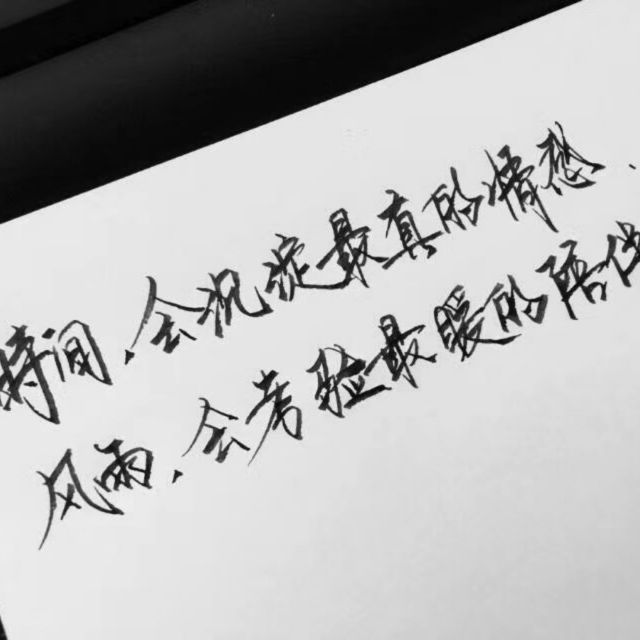 时间，会沉淀最真的情感，
风雨，会考验最暖的陪伴